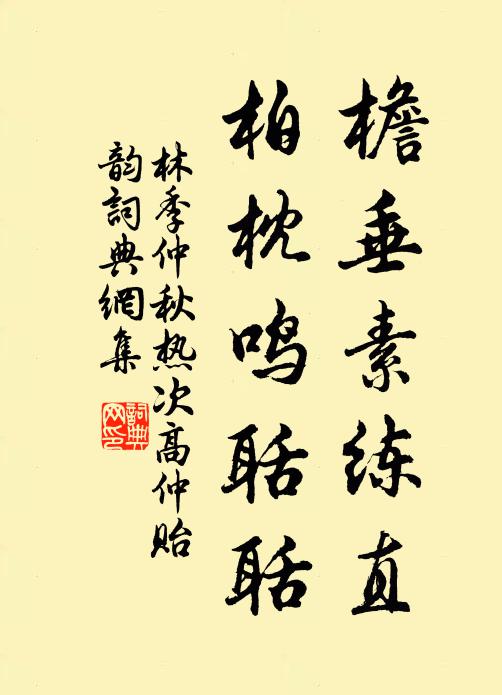 檐垂素练直
柏枕鸣聒聒
林季仲秋热次高仲贻
韵词典网集
词典
网印